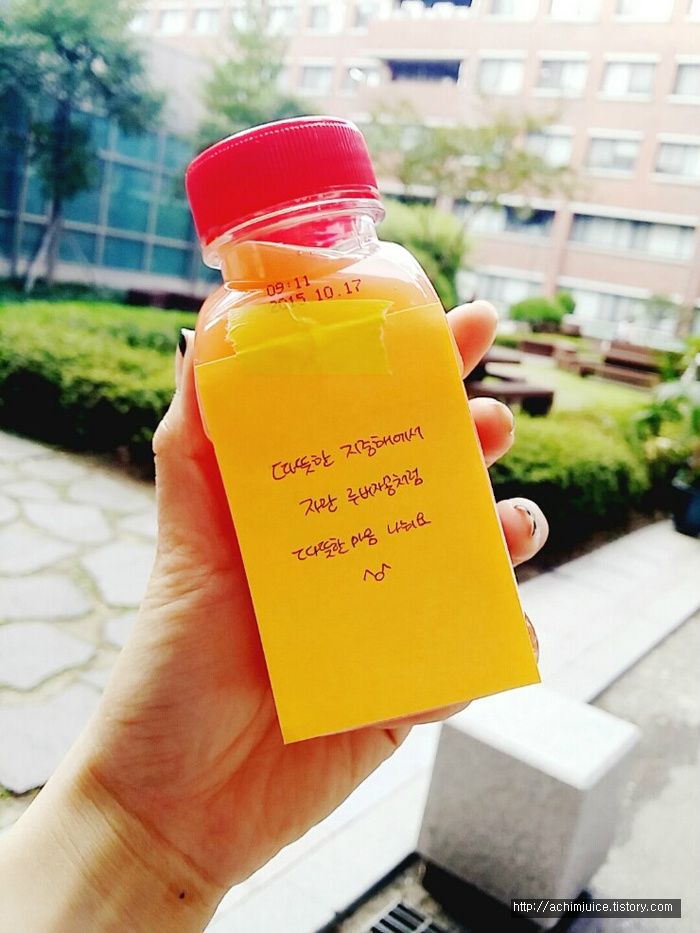 09:11
2015.10.17
따뜻한 지중해에서
자란 루비자몽처럼
따뜻한 마음 나눠요
^o^
http://achimjuice.tistory.com